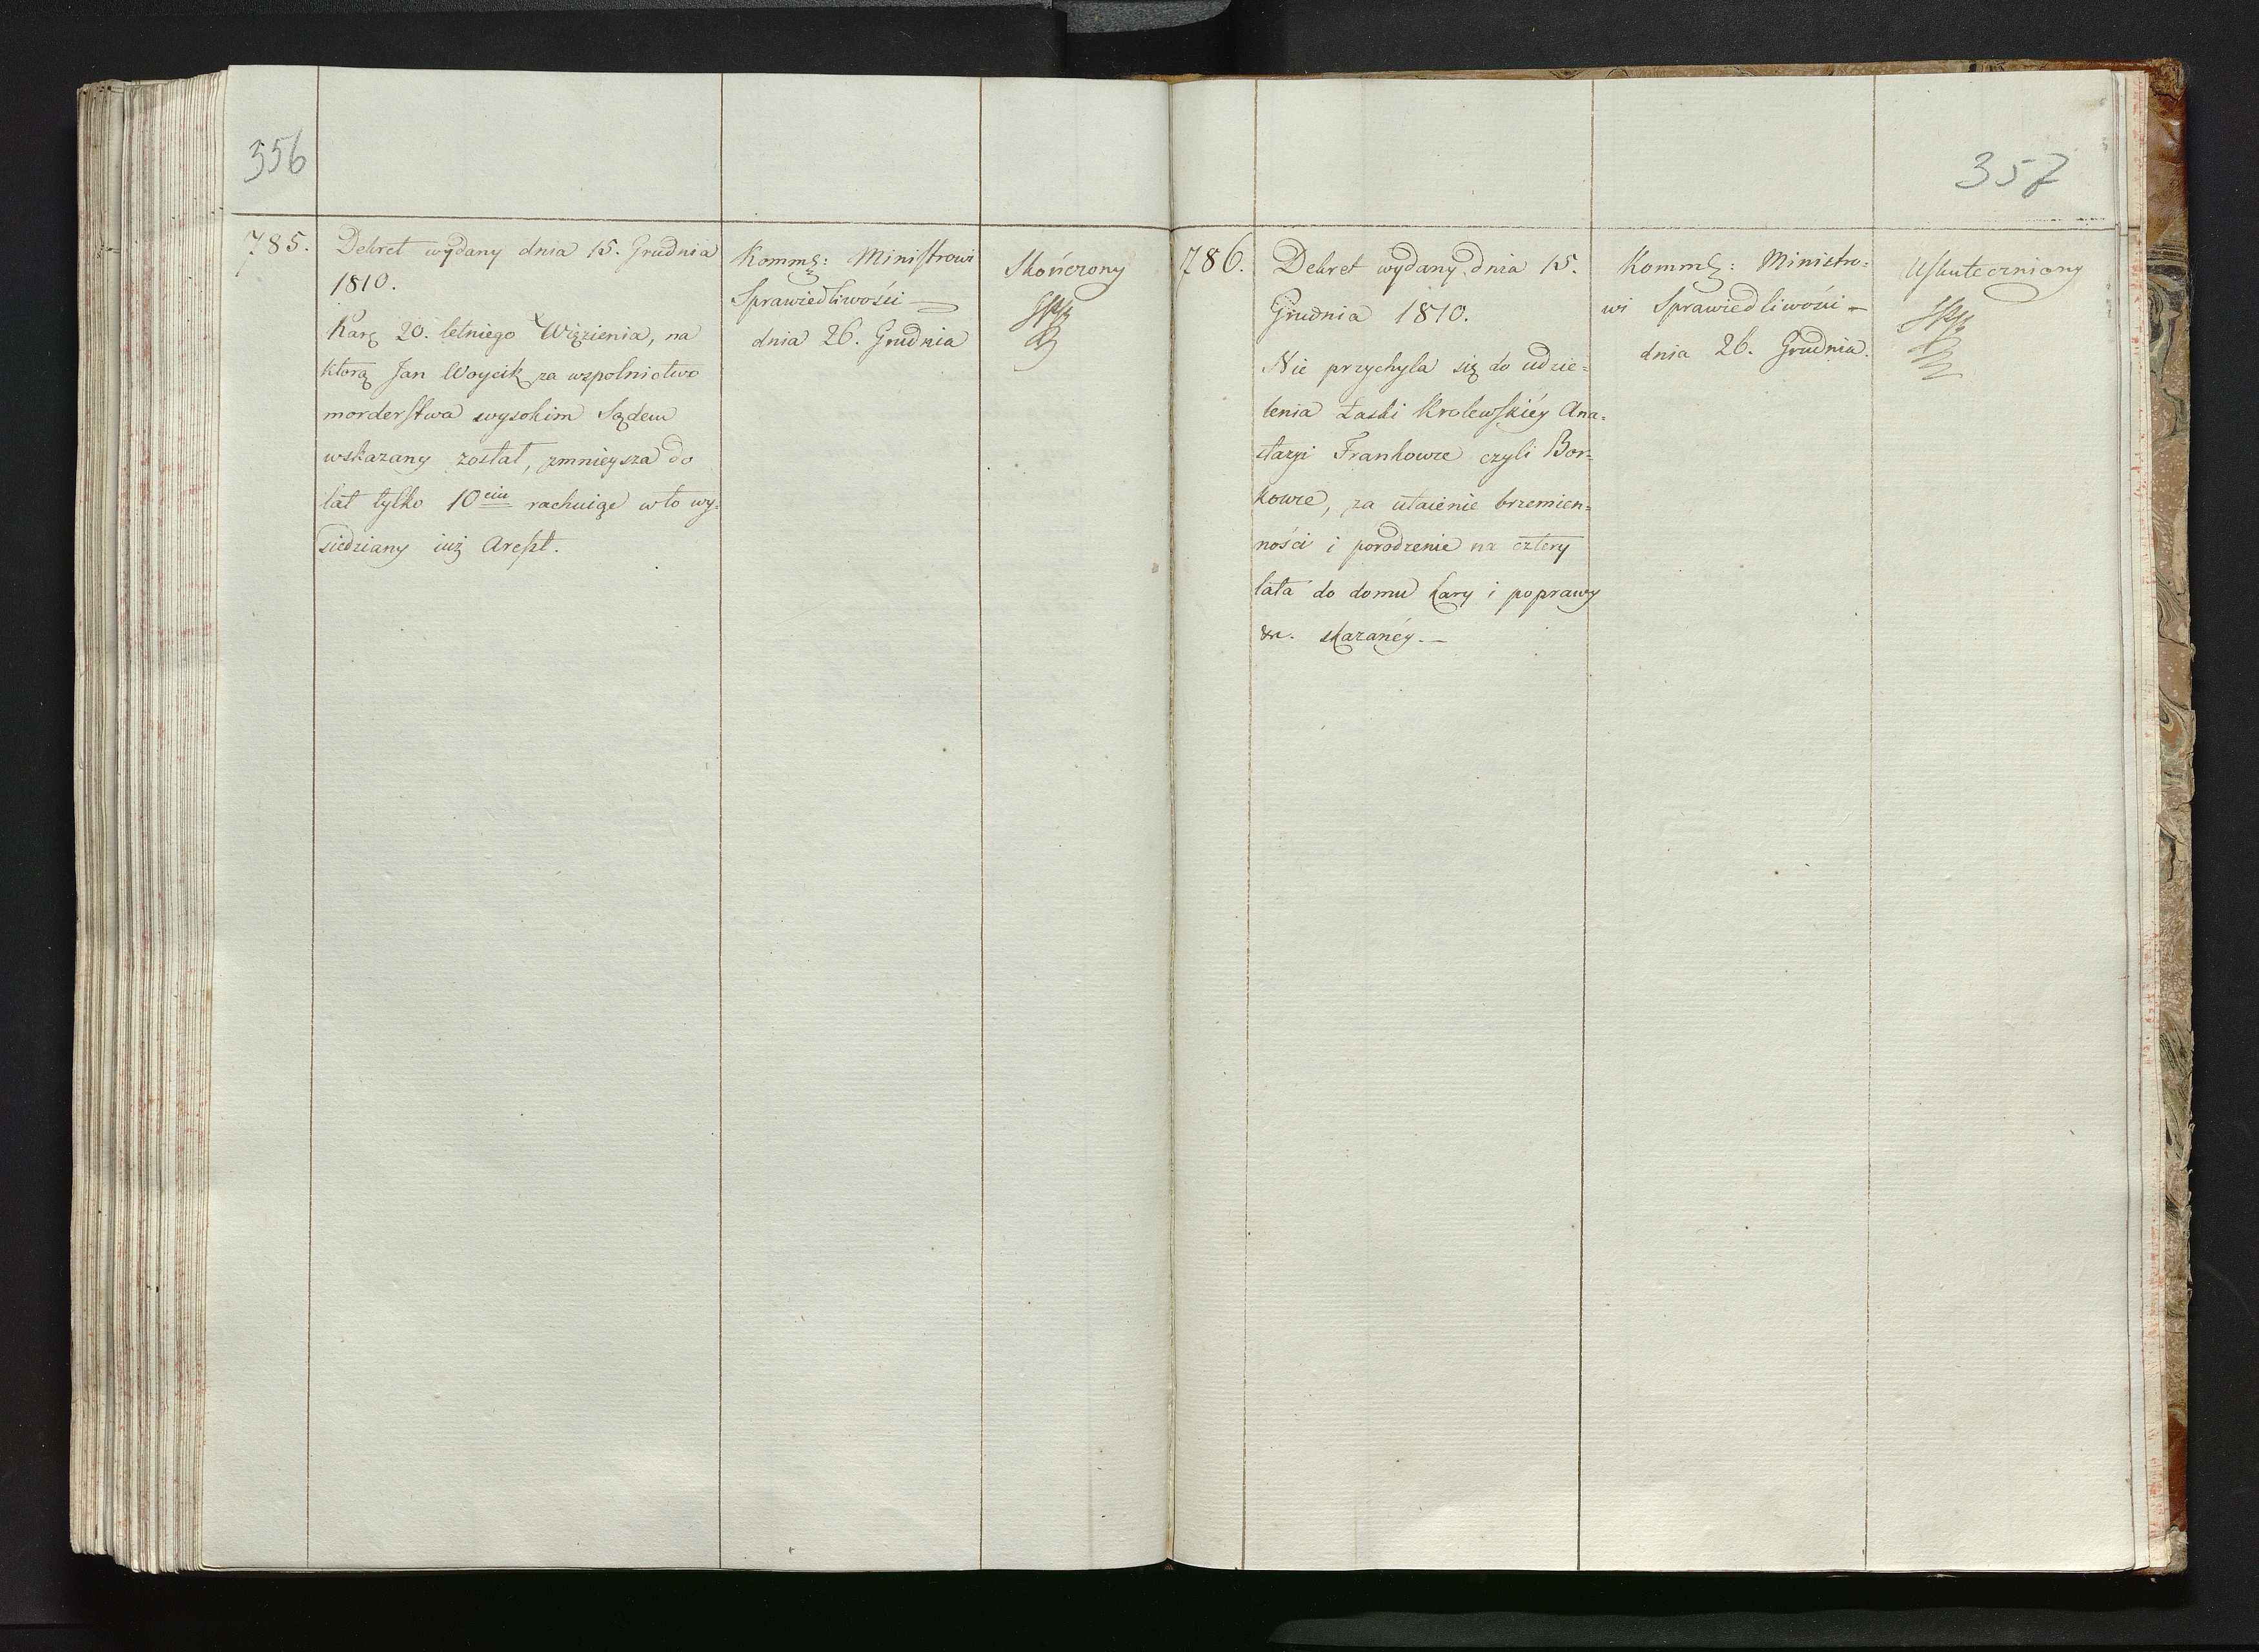 356
785.
Dekret wydany dnia 15. Grudnia
1810.
Karę 20. letniego Więzienia, na
ktorą Jan Woycik za wspolnictwo
morderstwa wysokim Sądem
wskazany został, zmnieysza do
lat tylko 10ciu rachuiąc w to wy=
siedziany iuż Areszt.
Komm: Ministrowi
Sprawiedliwości —
dnia 26. Grudnia
Skończony
357
786.
Dekret wydany dnia 15.
Grudnia 1810.
Nie przychyla się do udzie=
lenia Łaski Krolewskiéy Ana=
stazyi Frankowre czyli Bor=
kowre, za utaienie brzemien=
ności i porodzenie na cztery
lata do domu kary i poprawy
&c. skazanéy. —
Komm: Ministro=
wi Sprawiedliwości —
dnia 26. Grudnia.
Uskuteczniony